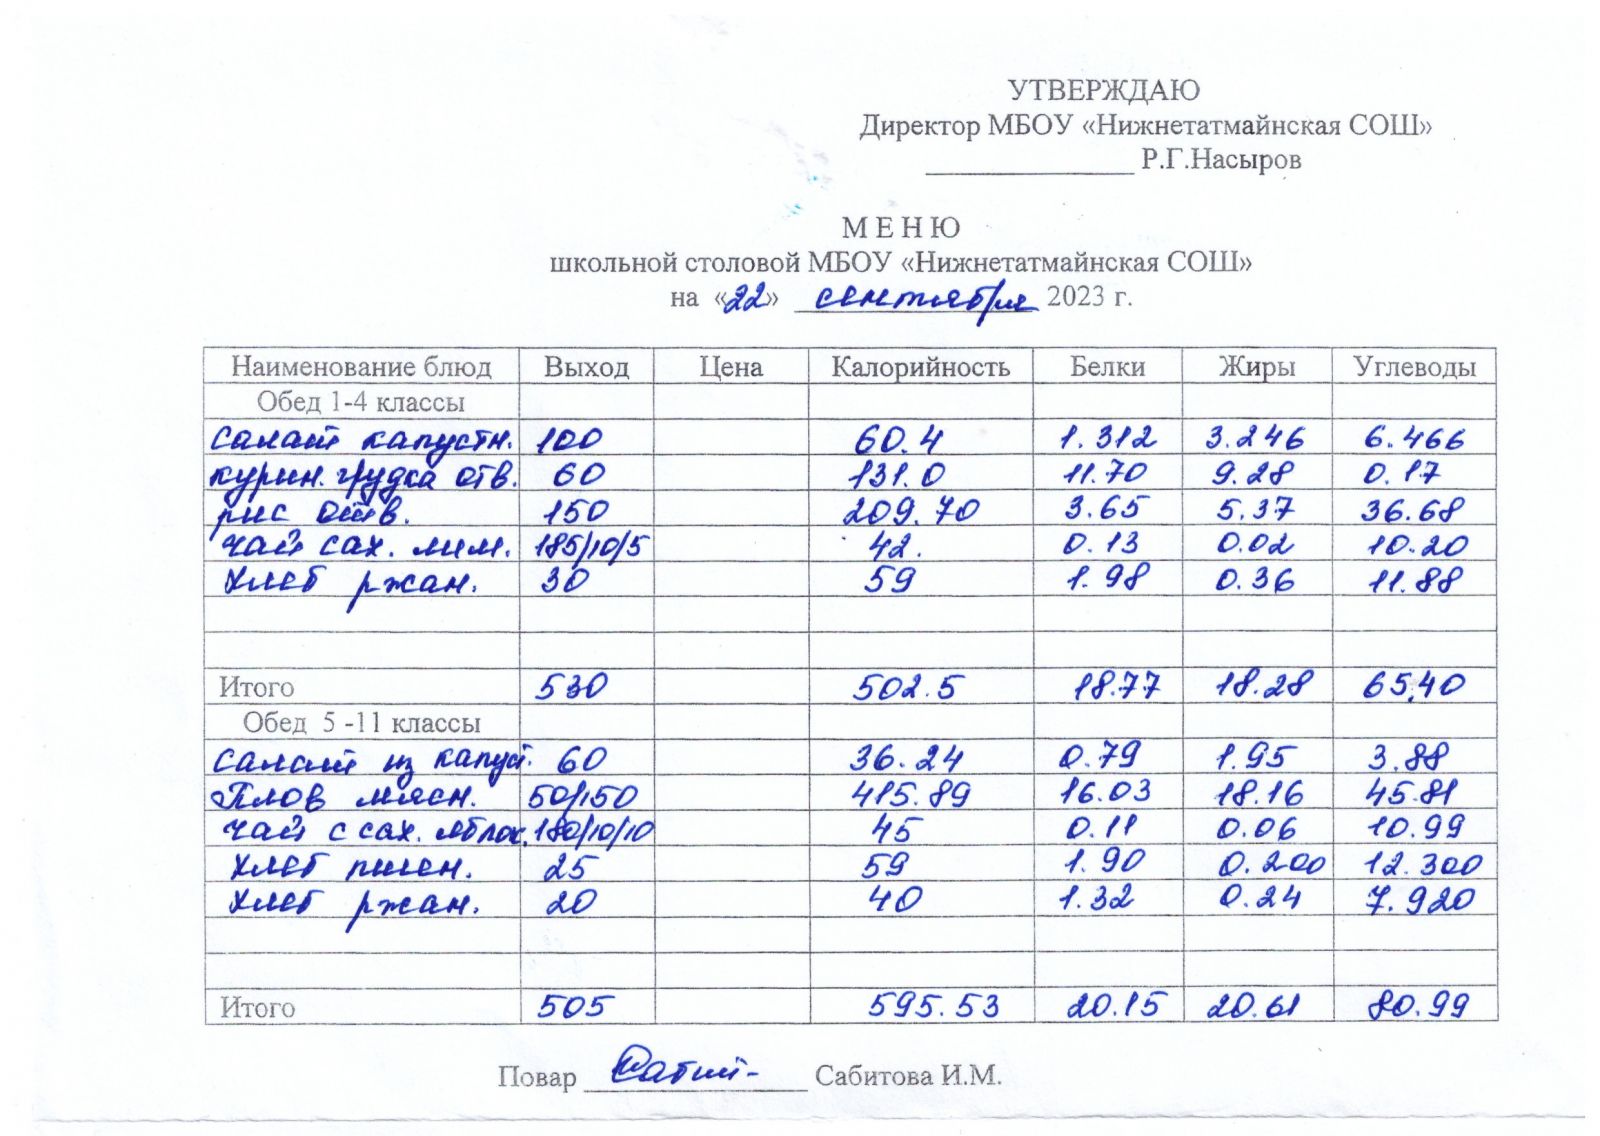 УТВЕРЖДАЮ
Директор МБОУ «Нижнетатмайнская СОШ»
_______________ Р.Г.Насыров
М Е Н Ю
школьной столовой МБОУ «Нижнетатмайнская СОШ»
на «22» сентября 2023 г.
Наименование блюд Выход Цена Калорийность Белки Жиры Углеводы
Обед 1-4 классы
Салат капустн. 100 60.4 1.312 3.246 6.466
курин. грудка отв. 60 131.0 11.70 9.28 0.17
рис отв. 150 209.70 3.65 5.37 36.68
чай сах. лим. 185/10/5 42. 0.13 0.02 10.20
Хлеб ржан. 30 59 1.98 0.36 11.88
Итого 530 502.5 18.77 18.28 65,40
Обед 5 -11 классы
Салат из капуст. 60 36.24 0.79 1.95 3.88
Плов мясн. 50/150 415.89 16.03 18.16 45.81
чай с сах. яблок. 180/10/10 45 0.11 0.06 10.99
Хлеб пшен. 25 59 1.90 0.200 12.300
Хлеб ржан. 20 40 1.32 0.24 7.920
Итого 505 595.53 20.15 20.61 80.99
Повар _______________ Сабитова И.М.